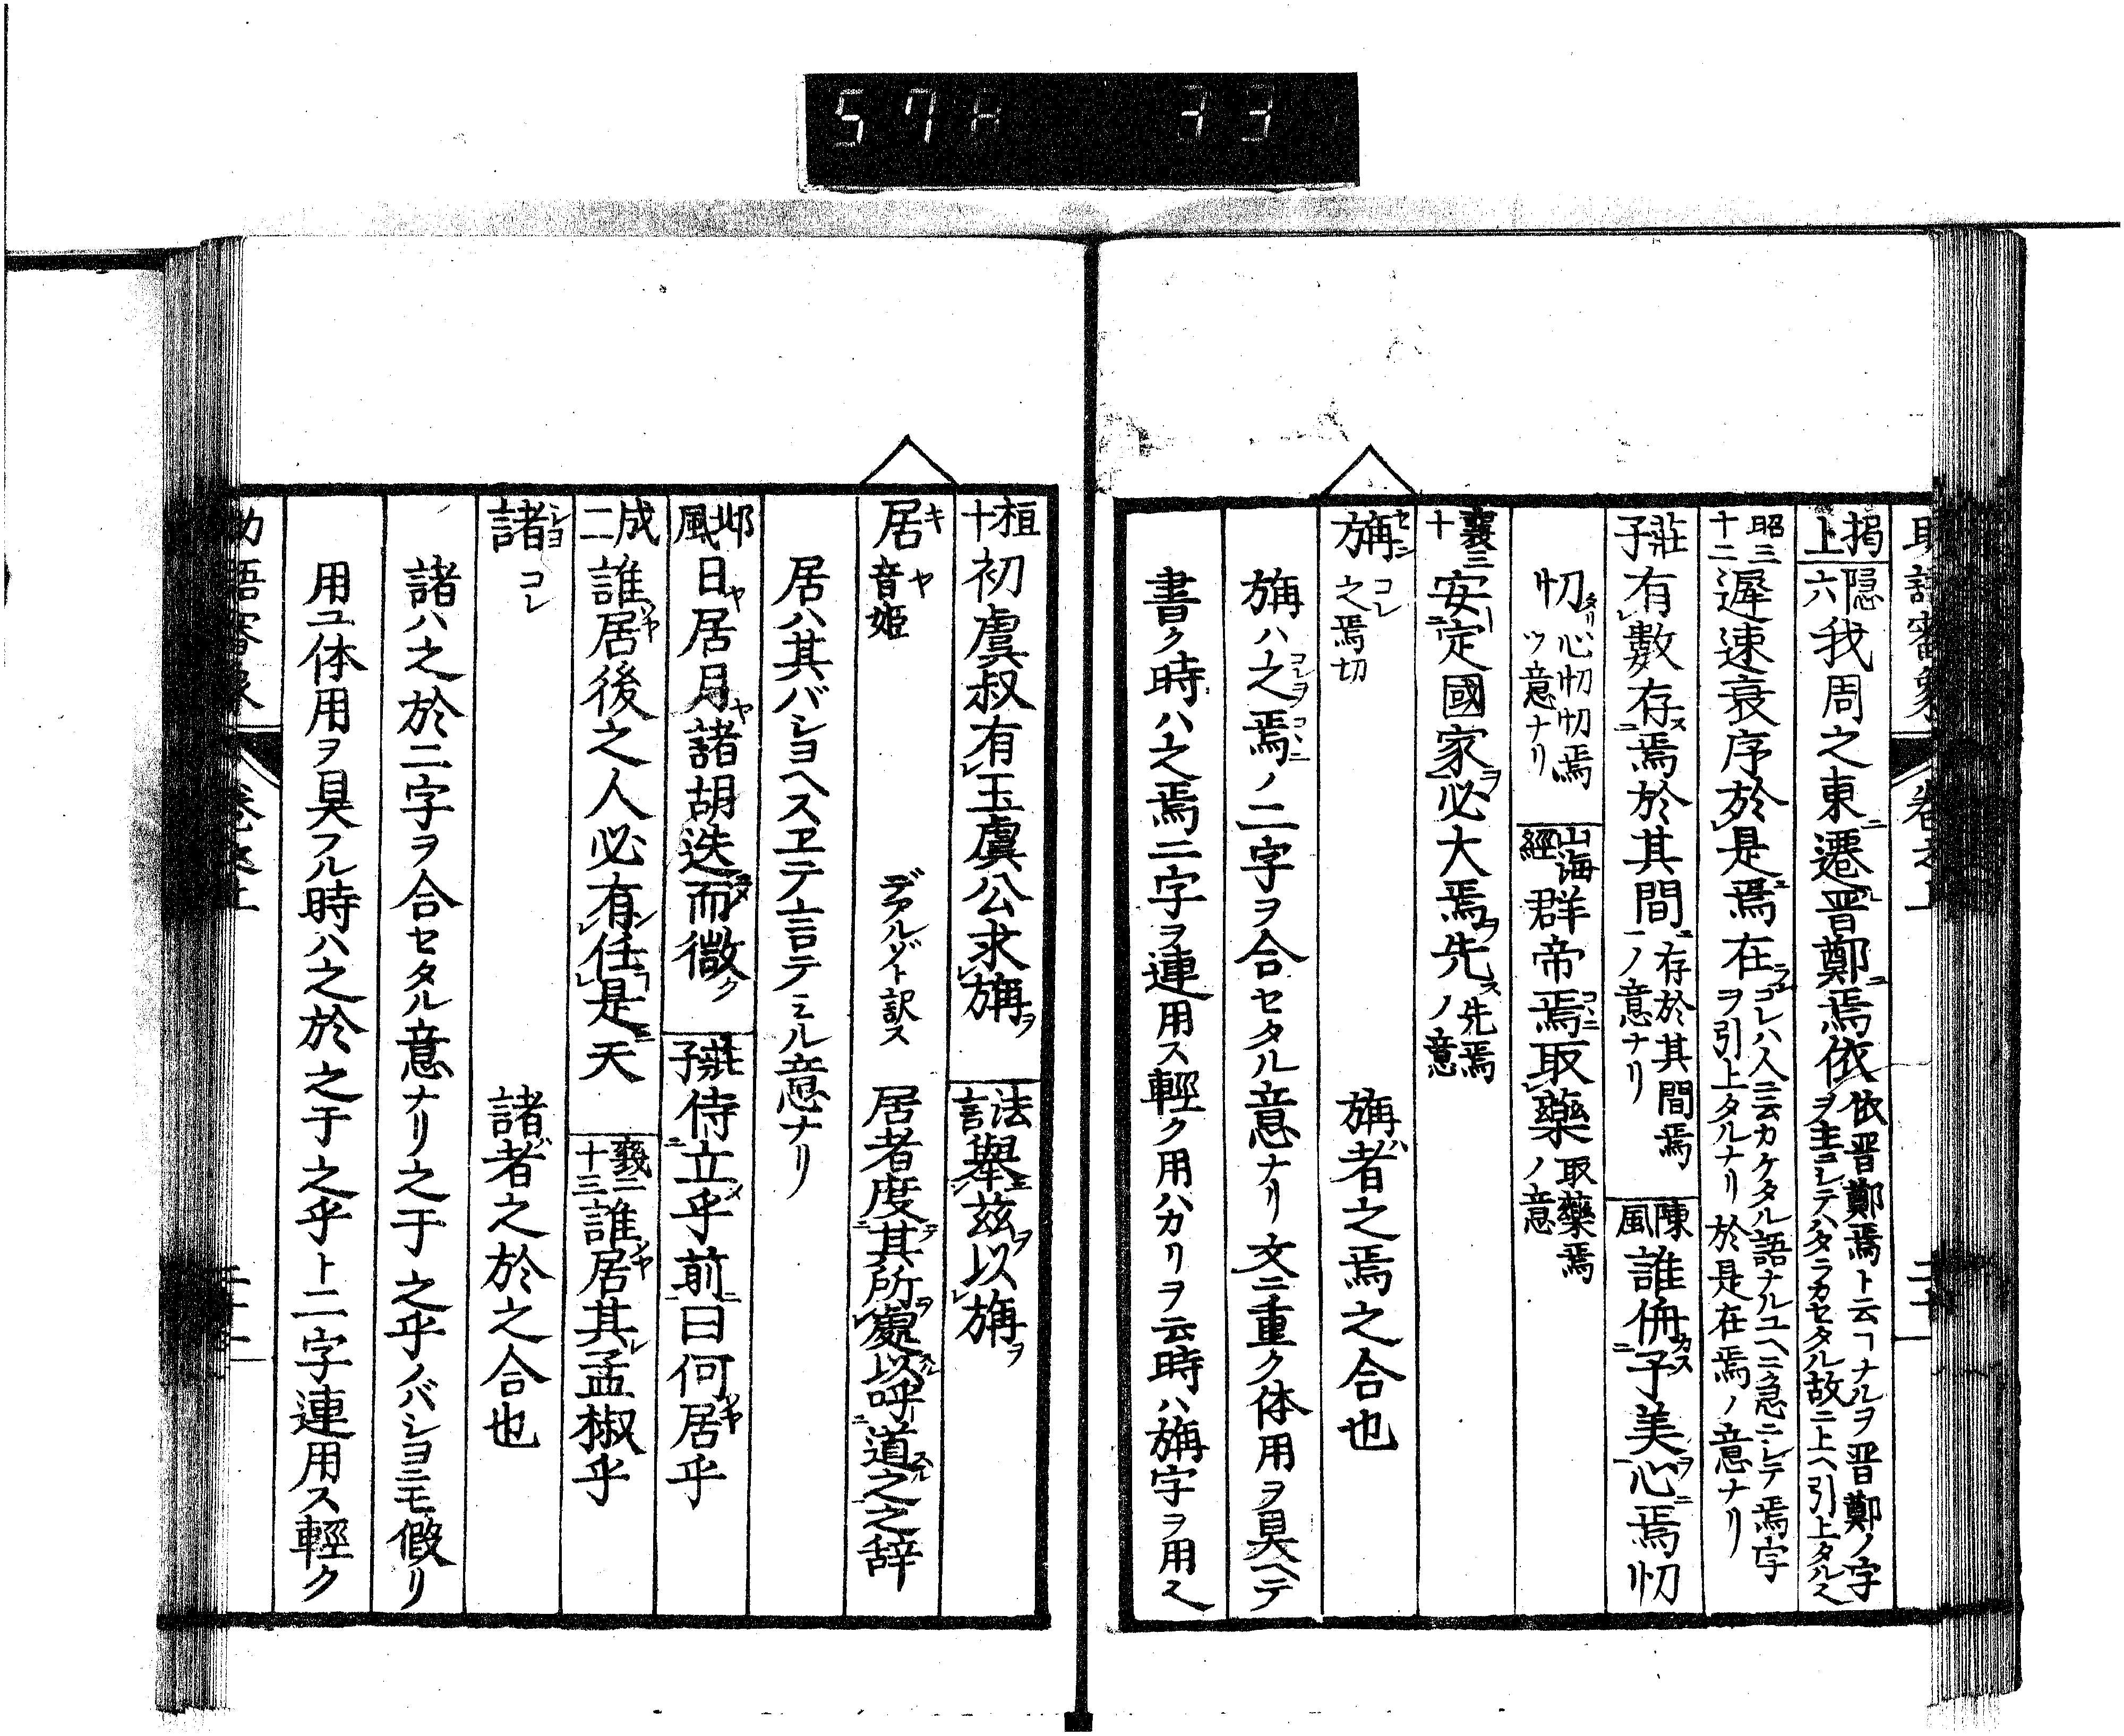 57A 33
揭上 隱六 我周之東遷晋鄭焉依 依晋鄭焉ト云ヿナルヲ晋鄭ノ字ヲ主ニシテハタラカセタル故ニ上ヘ引上タル也
昭三十二 遲速衰序於是焉在 コレハ入ニ云カケタル語ナルユヘニ急ニシテ焉字ヲ引上タルナリ 於是在焉ノ意ナリ
莊子 有數存焉於其間 存於其間焉ノ意ナリ 陳風 誰侜予美心焉忉
忉 心忉忉焉ツ意ナリ 山海經 群帝焉取藥 取藥焉ノ意
襄三十 安定國家必大焉先 先焉ノ意
旃 セン コレ 之焉切 旃者之焉之合也
旃ハ之焉ノ二字ヲ合セタル意ナリ文ニ重ク体用ヲ具ヘテ
書ク時ハ之焉二字ヲ連用ス輕ク用ハカリヲ云時ハ旃字ヲ用ユ
桓十 初虞叔有玉虞公求旃 法言 舉茲以旃
居 キ ヤ 音姬 デアルゾト訳ス 居者度其所處以呼道之之辞
居ハ其バショヘスヱテ言テミル意ナリ
邶風 日居月諸胡迭而微 莊子 侍立乎前曰何居乎
成二 誰居後之人必有任是夫 襄二十三 誰居其孟椒乎
諸 ショ コレ 諸者之於之合也
諸ハ之於二字ヲ合セタル意ナリ之于之乎ノバショニモ假リ
用ユ体用ヲ具フル時ハ之於之于之乎ト二字連用ス輕ク
助語審象 卷之上